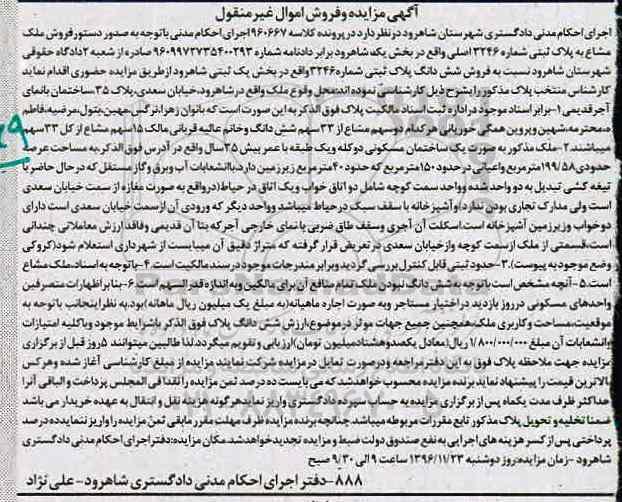 آگهی مزایده وفروش اموال غیرمنقول
اجرای احکام مدنی دادگستری شهرستان شاهرود در نظر دارد در پرونده کلاسه ۹۶۰۶۶۷اجرای احکام مدنی باتوجه به صدور دستور فروش ملک
مشاع به پلاک ثبتی شماره ۳۲۴۶اصلی واقع در بخش یک شاهرود برابر دادنامه شماره ۹۶۰۹۹۷۲۷۳۵۴۰۰۲۹۳صادره از شعبه ۲دادگاه حقوقی
شهرستان شاهرود نسبت به فروش شش دانگ پلاک ثبتی شماره۳۲۴۶واقع در بخش یک ثبتی شاهرود ازطریق مزایده حضوری اقدام نماید
کارشناس منتخب پلاک مذکور رابشرح ذیل کارشناسی نموده اند:محل وقوع ملک واقع در شاهرود،خیابان سعدی،پلاک ۳۵،ساختمان بانمای
آجرقدیمی ۱-برابر اسناد موجود دراداره ثبت اسناد مالکیت پلاک فوق الذکر به این صورت است که بانوان زهرا،نرگس،جهین،بتول،مرضیه،فاطم
ه،محترمه،شهین وپروین همگی خوریانی هرکدام دوسهم مشاع از ۳۳ سهم شش دانگ وخانم عالیه قربانی مالک ۱۵سهم مشاع از کل ۳۳سهم
میباشند.۲-ملک مذکور به صورت یک ساختمان مسکونی دوکله ویک طبقه با عمر بیش ۳۵سال واقع در آدرس فوق الذکر،به مساحت عرصه
حدودی۱۹۹/۵۸مترمربع واعیانی درحدود۱۵۰مترمربع که حدود ۴۰مترمربع زیرزمین دارد،باانشعابات آب وبرق وگاز مستقل که درحال حاضر با
تیغه کشی تبدیل به دو واحد شده وواحد سمت کوچه شامل دو اتاق خواب ویک اتاق در حیاط(درواقع به صورت مغازه از سمت خیابان سعدی
است ولی مدارک تجاری بودن ندارد)وآشپزخانه با سقف سبک درحیاط میباشد وواحد دیگر که ورودی آن ازسمت خیابان سعدی است دارای
دوخواب وزیرزمین آشپزخانه است.اسکلت آن آجری وسقف طاق ضربی بانمای خارجی آجرکه بنا آن قدیمی وفاقد ارزش معاملاتی چندانی
است،قسمتی از ملک ازسمت کوچه وازخیابان سعدی درتعریض قرار گرفته که متراژ دقیق آن میبایست از شهرداری استعلام شود(کروکی
وضع موجود به پیوست).۳-حدود ثبتی قابل کنترل بررسی گردید وبرابر مندرجات موجود درسند مالکیت است.۴-باتوجه به اسناد،ملک مشاع
است.۵-آنچه مشخص است باتوجه به شش دانگ نبودن ملک تمام منافع آن برای مالکین وبه اندازه قدرالسهم است.۶-بنابراظهارات متصرفین
واحدهای مسکونی درروز بازدید دراختیار مستاجر وبه صورت اجاره ماهیانه(به مبلغ یک میلیون ریال ماهانه)بود.به نظر اینجانب باتوجه به
موقعیت،مساحت وکاربری ملک،همچنین جمیع جهات موثر درموضوع،ارزش شش دانگ پلاک فوق الذکر باشرایط موجود وباکلیه امتیازات
وانشعابات آن مبلغ ۱/۸۰۰/۰۰۰/۰۰۰ریال(معادل یکصدوهشتادمیلیون تومان)ارزیابی و تقویم میگردد.لذا طالبین میتوانند ۵روز قبل از برگزاری
مزایده جهت ملاحظه پلاک فوق به این دفتر مراجعه ودرصورت تمایل در مزایده شرکت نمایند.مزایده از مبلغ کارشناسی آغاز شده وهرکس
بالاترین قیمت را پیشنهاد نماید برنده مزایده محسوب خواهد شد که می بایست ده درصد ثمن مزایده رانقدا فی المجلس پرداخت و الباقی آنرا
حداکثر ظرف مدت یکماه پس از برگزاری مزایده به حساب سپرده دادگستری واریز نماید.هرگونه هزینه نقل و انتقال به عهده خریدار می باشد
ضمنا تخلیه و تحویل پلاک مذکور تابع مقررات مربوطه میباشد.چنانچه برنده مزایده ظرف مهلت مقرر مابقی ثمن مزایده را واریز ننماید،ده درصد
پرداختی پس از کسر هزینه های اجرایی به نفع صندوق دولت ضبط و مزایده تجدید خواهد شد.مکان مزایده:دفتر اجرای احکام مدنی دادگستری
شاهرود -زمان مزایده:روز دوشنبه ۱۳۹۶/۱۱/۲۳ ساعت ۹ الی ۹/۳۰ صبح
۸۸۸-دفتر اجرای احکام مدنی دادگستری شاهرود-علی نژاد